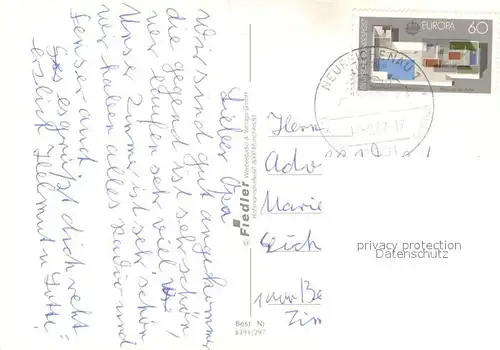 Lieber Opa
Wir sind gut angekommen
die gegend ist sehr schön,
wir laufen sehr viel,
Unser Zimmer ist seh, schön
wir haben alles Radio und
Fernseher und
es grüßt dich recht
erzlich Helmut u Lotti!
© Fiedler Werbestudio & Verlags-GmbH
Best Nr
8391/297
EUROPA 60
NEUREICHENAU
Herrn
Adv
Marie
1000 Be
Zim
privacy protection
Datenschutz